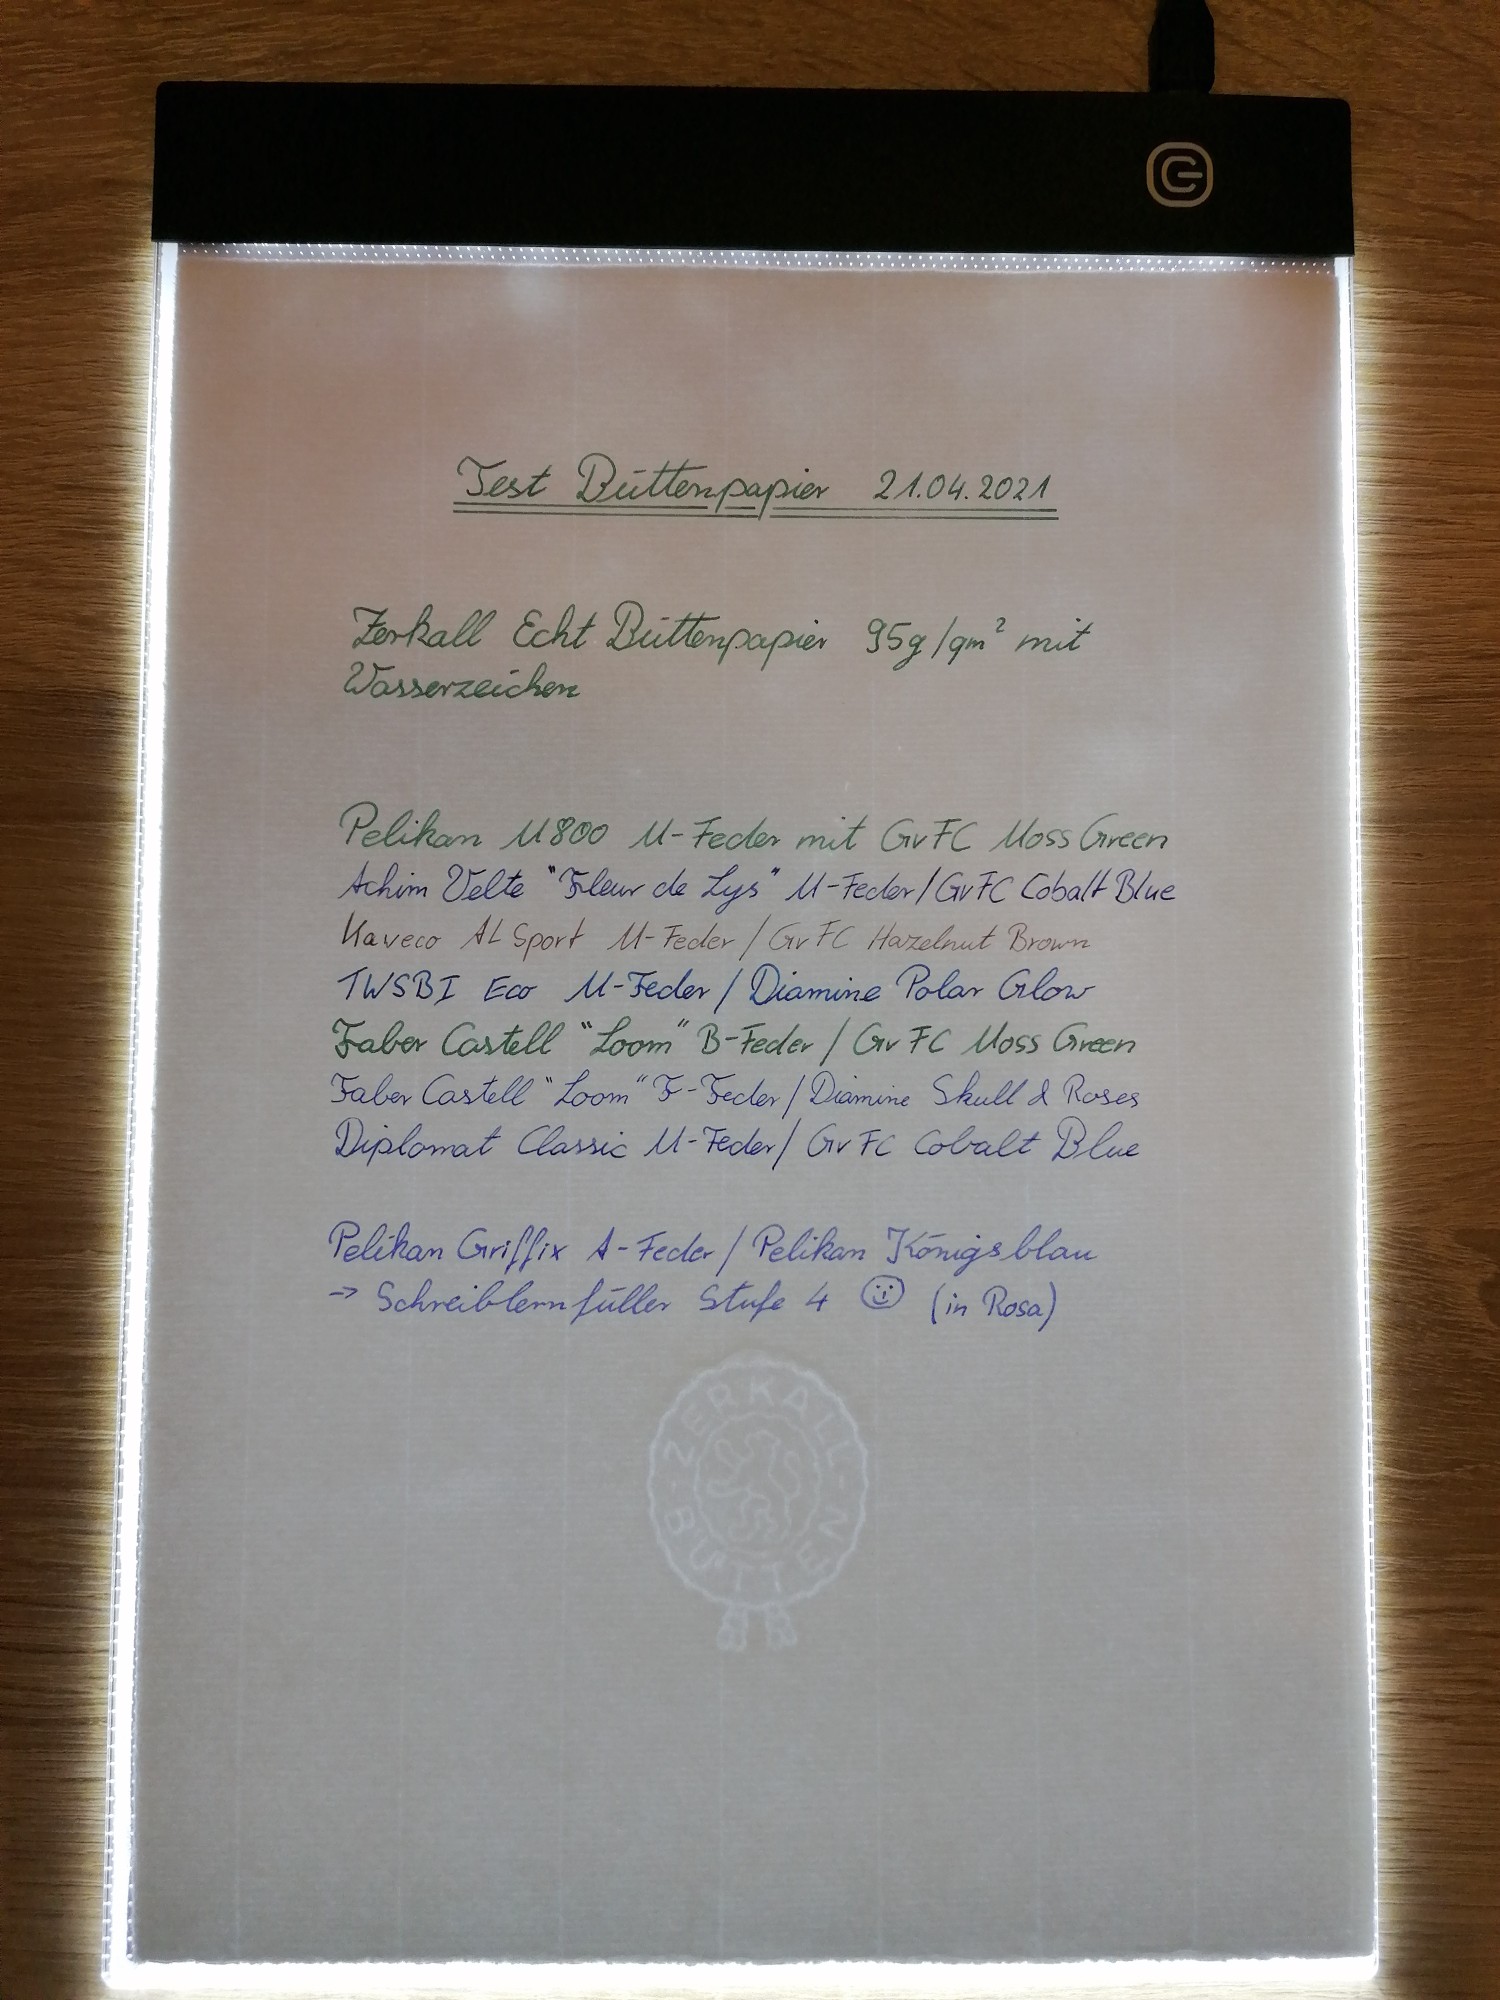 Test Büttenpapier 21.04.2021
Zerkall Echt Büttenpapier 95g/qm² mit
Wasserzeichen
Pelikan M800 M-Feder mit GvFC Moss Green
Achim Velte "Fleur de Lys" M-Feder/GvFC Cobalt Blue
Kaweco AL Sport M-Feder/GvFC Hazelnut Brown
TWSBI Eco M-Feder/Diamine Polar Glow
Faber Castell "Loom" B-Feder/GvFC Moss Green
Faber Castell "Loom" F-Feder/Diamine Skull & Roses
Diplomat Classic M-Feder/GvFC Cobalt Blue
Pelikan Griffix A-Feder/Pelikan Königsblau
→ Schreiblernfüller Stufe 4 ☺ (in Rosa)
ZERKALL
BÜTTEN